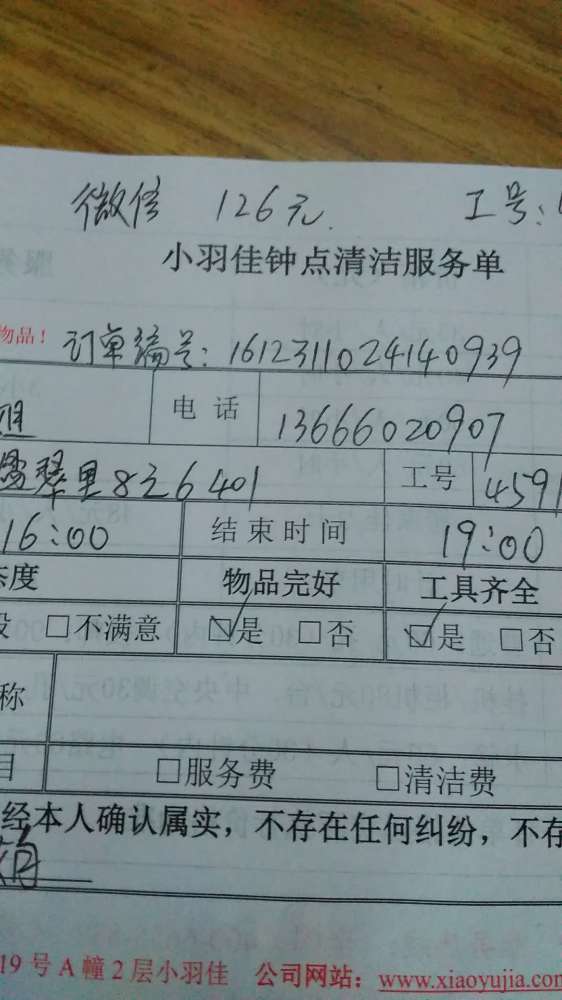 微信 126元 工号:
小羽佳钟点清洁服务单
物品! 订单编号:1612311024140939
电话 13666020907
翠里826401 工号 4591
16:00 结束时间 19:00
态度 物品完好 工具齐全
般 □不满意 ☑是 □否 ☑是 □否
称
目 □服务费 □清洁费
经本人确认属实,不存在任何纠纷,不存
19号A幢2层小羽佳 公司网站:www.xiaoyujia.com